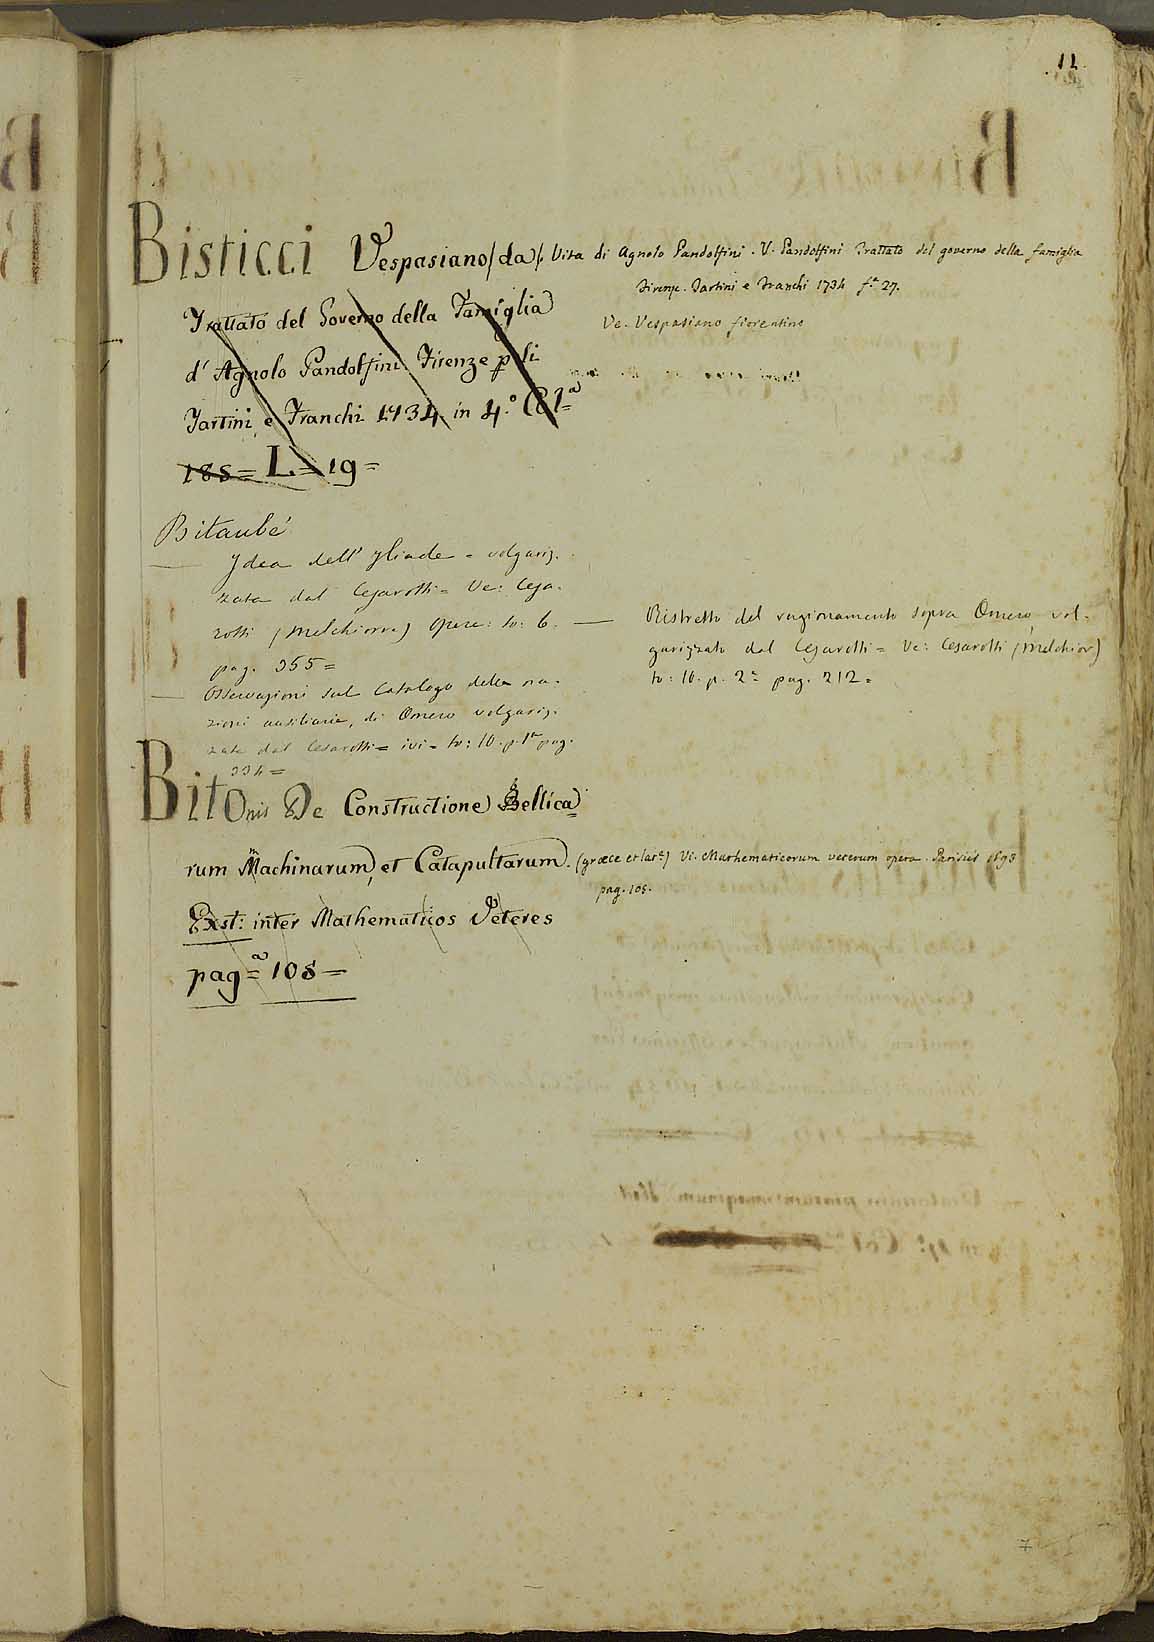 12
Bisticci Vespasiano (da). Vita di Agnolo Pandolfini. V. Pandolfini Trattato del governo della famiglia
Firenze. Tartini e Franchi 1734 f.ª 27.
Ve. Vespasiano fiorentino
Trattato del Governo della Famiglia
d' Agnolo Pandolfini. Firenze p li
Tartini, e Franchi 1734. in 4.º Col.ª
185= L=19=
Bitaubé
— Idea dell' Iliade = volgariz-
zata dal Cesarotti = Ve: Cesa-
rotti (Melchiorre) Opere: to: 6.
pag. 355=
— Osservazioni sul Catalogo delle na-
zioni ausiliarie, di Omero volgariz-
zate dal Cesarotti = ivi = to: 10. p. 1ª pag.
334=
— Ristretto del ragionamento sopra Omero vol-
garizzato dal Cesarotti = Ve: Cesarotti (Melchior)
to: 10. p. 2ª pag. 212=
Bitonis De Constructione Bellica=
rum Machinarum, et Catapultarum. (græce et lat.e) V. Mathematicorum veterum opera. Parisiis 1693
pag. 105.
Exst: inter Mathematicos Veteres
pag=ª 105=
7